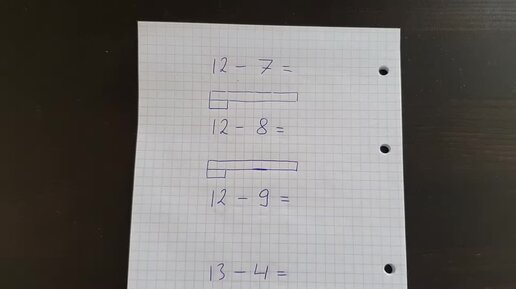 12 - 7 =
12 - 8 =
12 - 9 =
13 - 4 =